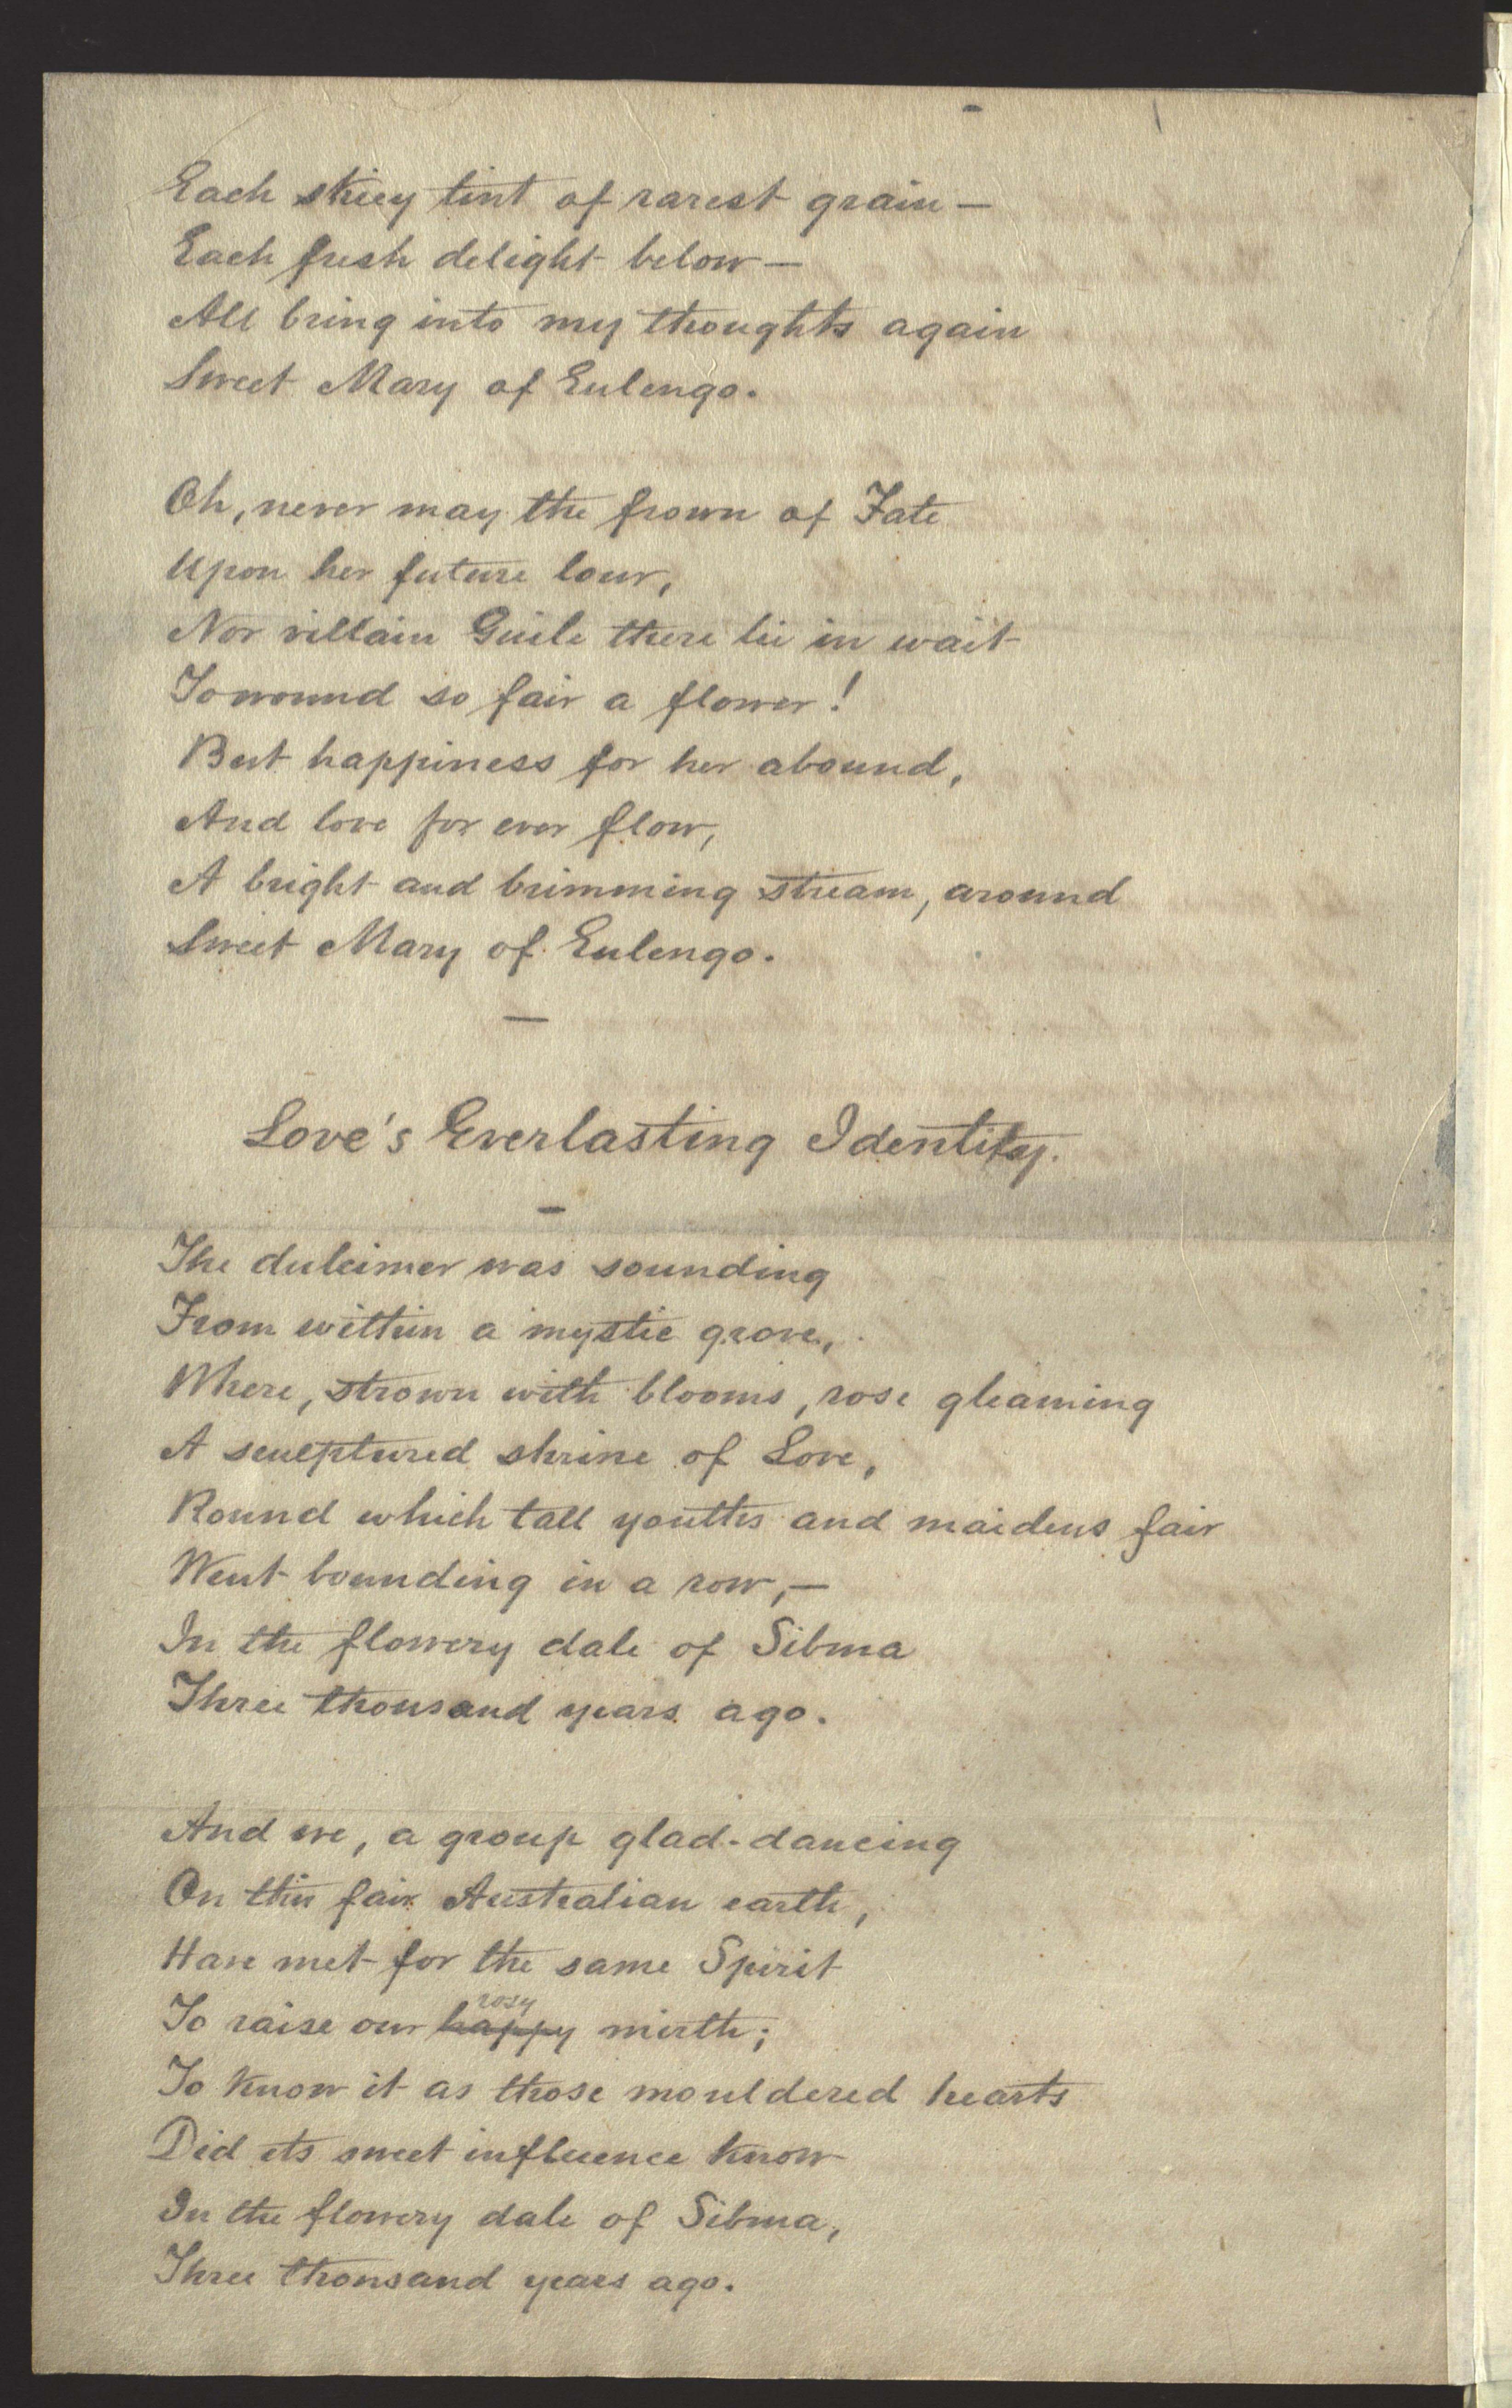 Each skiey tint of rarest grain —
Each fresh delight below —
All bring into my thoughts again
Sweet Mary of Eulengo.
Oh, never may the frown of Fate
Upon her future lour,
Nor villain Guile there lie in wait
To wound so fair a flower!
But happiness for her abound,
And love for ever flow,
A bright and brimming stream, around
Sweet Mary of Eulengo.
—
Love's Everlasting Identity.
—
The dulcimer was sounding
From within a mystic grove,
Where, strown with blooms, rose gleaming
A sculptured shrine of Love,
Round which tall youths and maidens fair
Went bounding in a row, —
In the flowery dale of Sibma
Three thousand years ago.
And we, a group glad-dancing
On this fair Australian earth,
Have met for the same Spirit
rosy
To raise our happy mirth;
To know it as those mouldered hearts
Did its sweet influence know
In the flowery dale of Sibma,
Three thousand years ago.